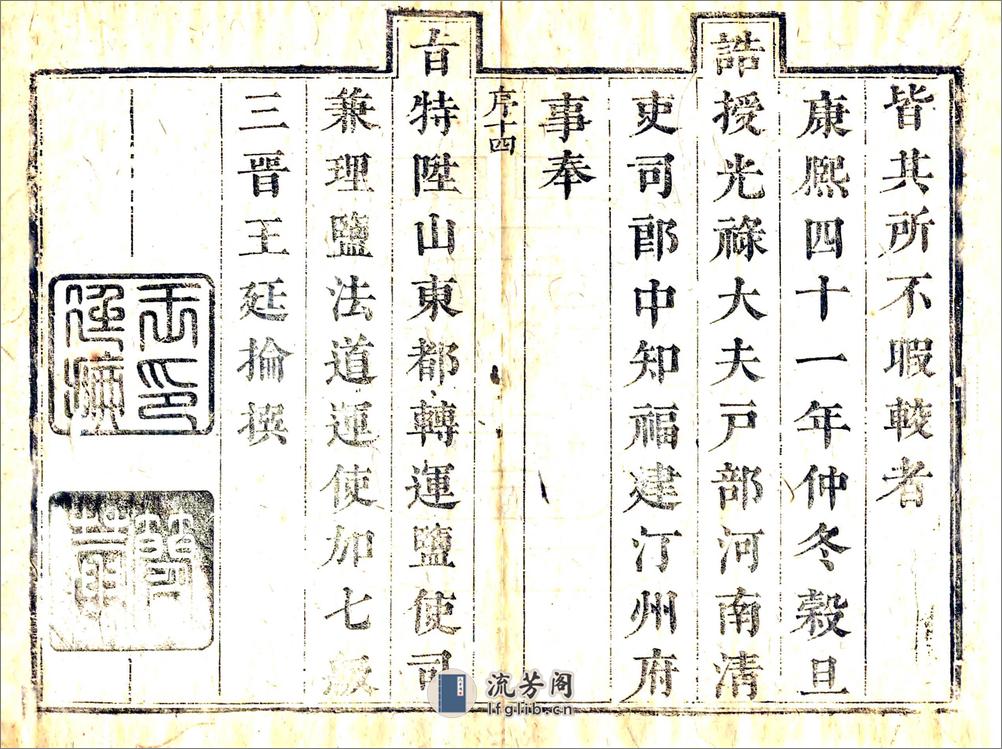 皆共所不暇較者
康熙四十一年仲冬穀旦
誥授光祿大夫戸部河南清
吏司郎中知福建汀州府
事奉
序十四
旨特陞山東都轉運鹽使司
兼理鹽法道運使加七級
三晋王廷掄撰
王印
廷掄
簡菴
流芳阁
lfglib.cn